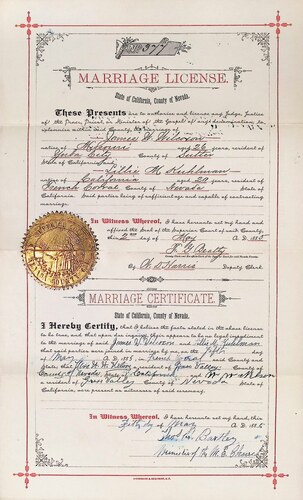 377
MARRIAGE LICENSE.
State of California, County of Nevada.
These Presents are to authorize and license any Judge, Justice
of the Peace, Priest, or Minister of the Gospel of any denomination, to
solemnize within said County, the marriage of
James W. Wilcoxon
native of Missouri aged 26 years, resident of
Yuba City County of Sutter
State of California, and
Lillie M. Kuhlman
native of California aged 20 years, resident of
French Corral County of Nevada State of
California. Said parties being of sufficient age and capable of contracting
marriage.
In Witness Whereof, I have hereunto set my hand and
affixed the Seal of the Superior Court of said County,
this 2nd day of May A. D. 1885
By Harris Deputy Clerk
MARRIAGE CERTIFICATE.
State of California, County of Nevada.
I Hereby Certify, that I believe the facts stated in the above license
to be true, and that upon due inquiry, there appears to be no legal impediment
to the marriage of said James W. Wilcoxon and Lillie M. Kuhlman
that said parties were joined in marriage by me, on the day
of May A. D. 1885, in said County and
State; that a resident of Grass Valley
County of Nevada State of California and
a resident of Grass Valley County of Nevada State of
California, were present as witnesses of said ceremony.
In Witness Whereof, I have hereunto set my hand, this
day of May A. D. 1885
Minister of the M. E. Church